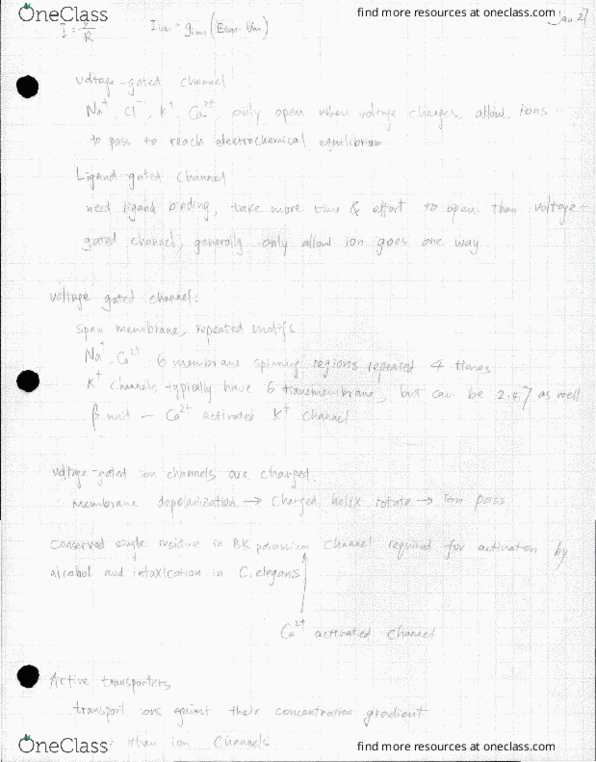 OneClass
find more resources at oneclass.com
Jan 27
I = V/R
I ion = g ion (Em - Eion)
voltage-gated channel
Na⁺, Cl⁻, K⁺, Ca²⁺, only open when voltage changes, allow ions
to pass to reach electrochemical equilibrium.
Ligand-gated channel
need ligand binding, take more time & effort to open than voltage-
gated channel, generally only allow ion goes one way
voltage gated channel:
span membrane, repeated motifs
Na⁺, Ca²⁺ 6 membrane spinning regions repeated 4 times
K⁺ channels typically have 6 transmembrane, but can be 2.4.7 as well
β unit - Ca²⁺ activated K⁺ channel
voltage-gated ion channels are charged.
membrane depolarization → charged helix rotate → ion pass
conserved single residue in BK potassium channel required for activation by
alcohol and intoxication in C.elegans
Ca²⁺ activated channel
Active transporters
transport ions against their concentration gradient
than ion channels
OneClass
find more resources at oneclass.com